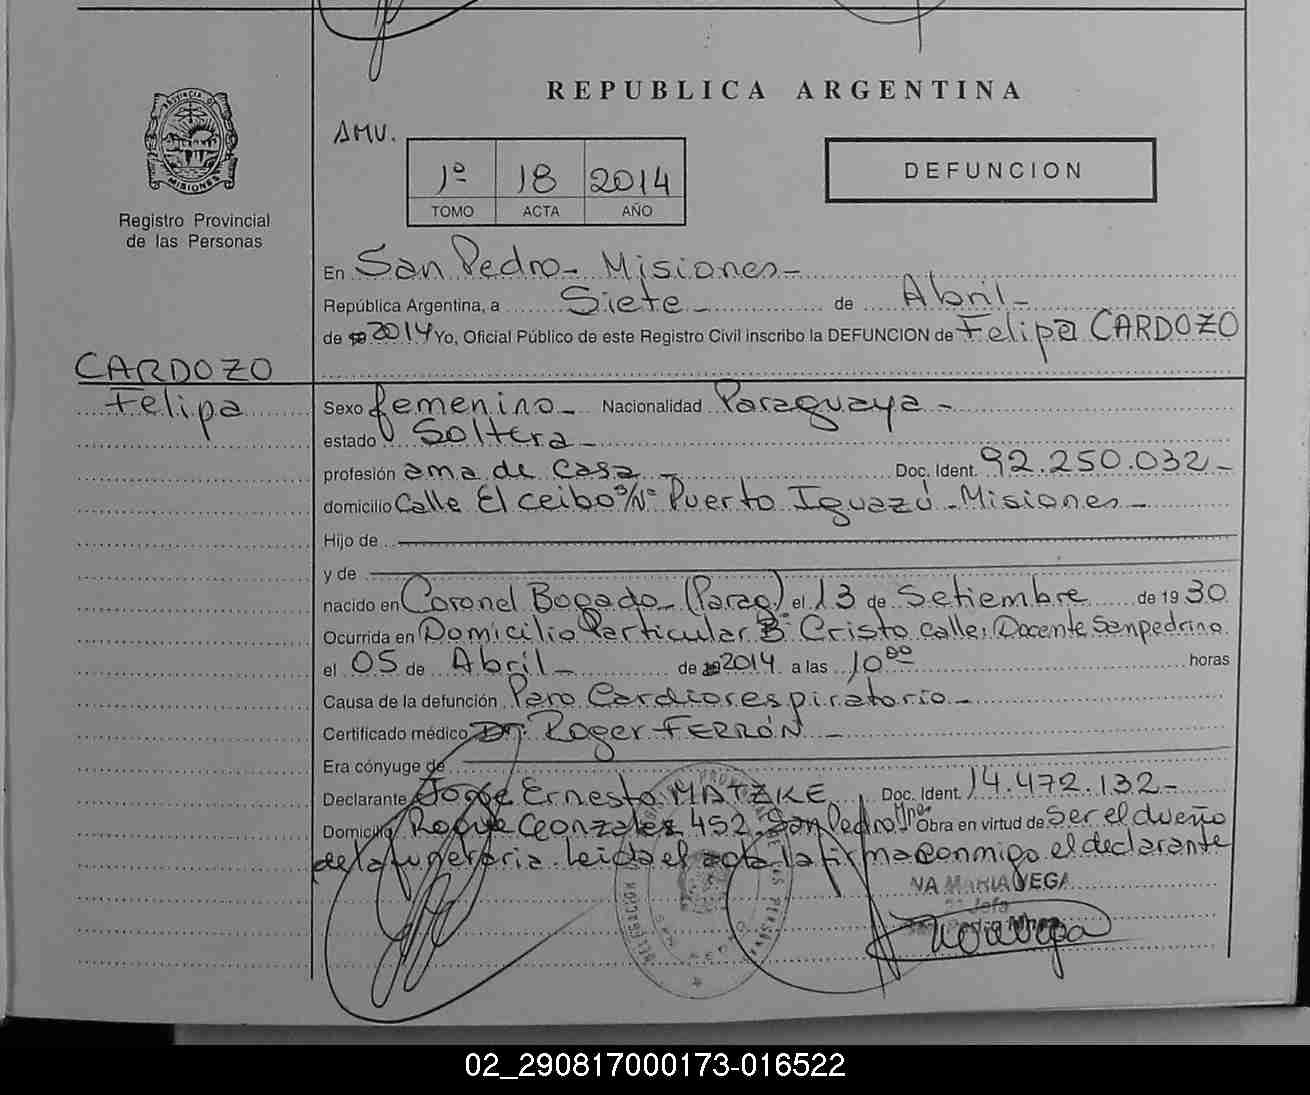 REPUBLICA ARGENTINA
PROVINCIA DE
MISIONES
Registro Provincial
de las Personas
AMV.
1º 18 2014
TOMO ACTA AÑO
DEFUNCION
En San Pedro - Misiones -
República Argentina, a Siete - de Abril -
de 2014 Yo, Oficial Público de este Registro Civil inscribo la DEFUNCION de Felipa CARDOZO
CARDOZO
Felipa
Sexo femenino - Nacionalidad Paraguaya -
estado Soltera -
profesión ama de casa - Doc. Ident. 92.250.032 -
domicilio Calle El Ceibo S/Nº Puerto Iguazú - Misiones -
Hijo de
y de
nacido en Coronel Bogado - (Parag) el 13 de Setiembre de 19 30
Ocurrida en Domicilio Particular Bº Cristo calle: Docente Sanpedrino
el 05 de Abril - de 2014 a las 10 00 horas
Causa de la defunción Paro Cardiorespiratorio -
Certificado médico Dr. Roger FERRÓN -
Era cónyuge de
Declarante Jorge Ernesto MATZKE Doc. Ident. 14.472.132 -
Domicilio Roque Gonzalez 452 - San Pedro Mnes Obra en virtud de Ser el dueño
de la funeraria. Leida el acta la firma conmigo el declarante
NA MARIA VEGA
Jefa
02_290817000173-016522